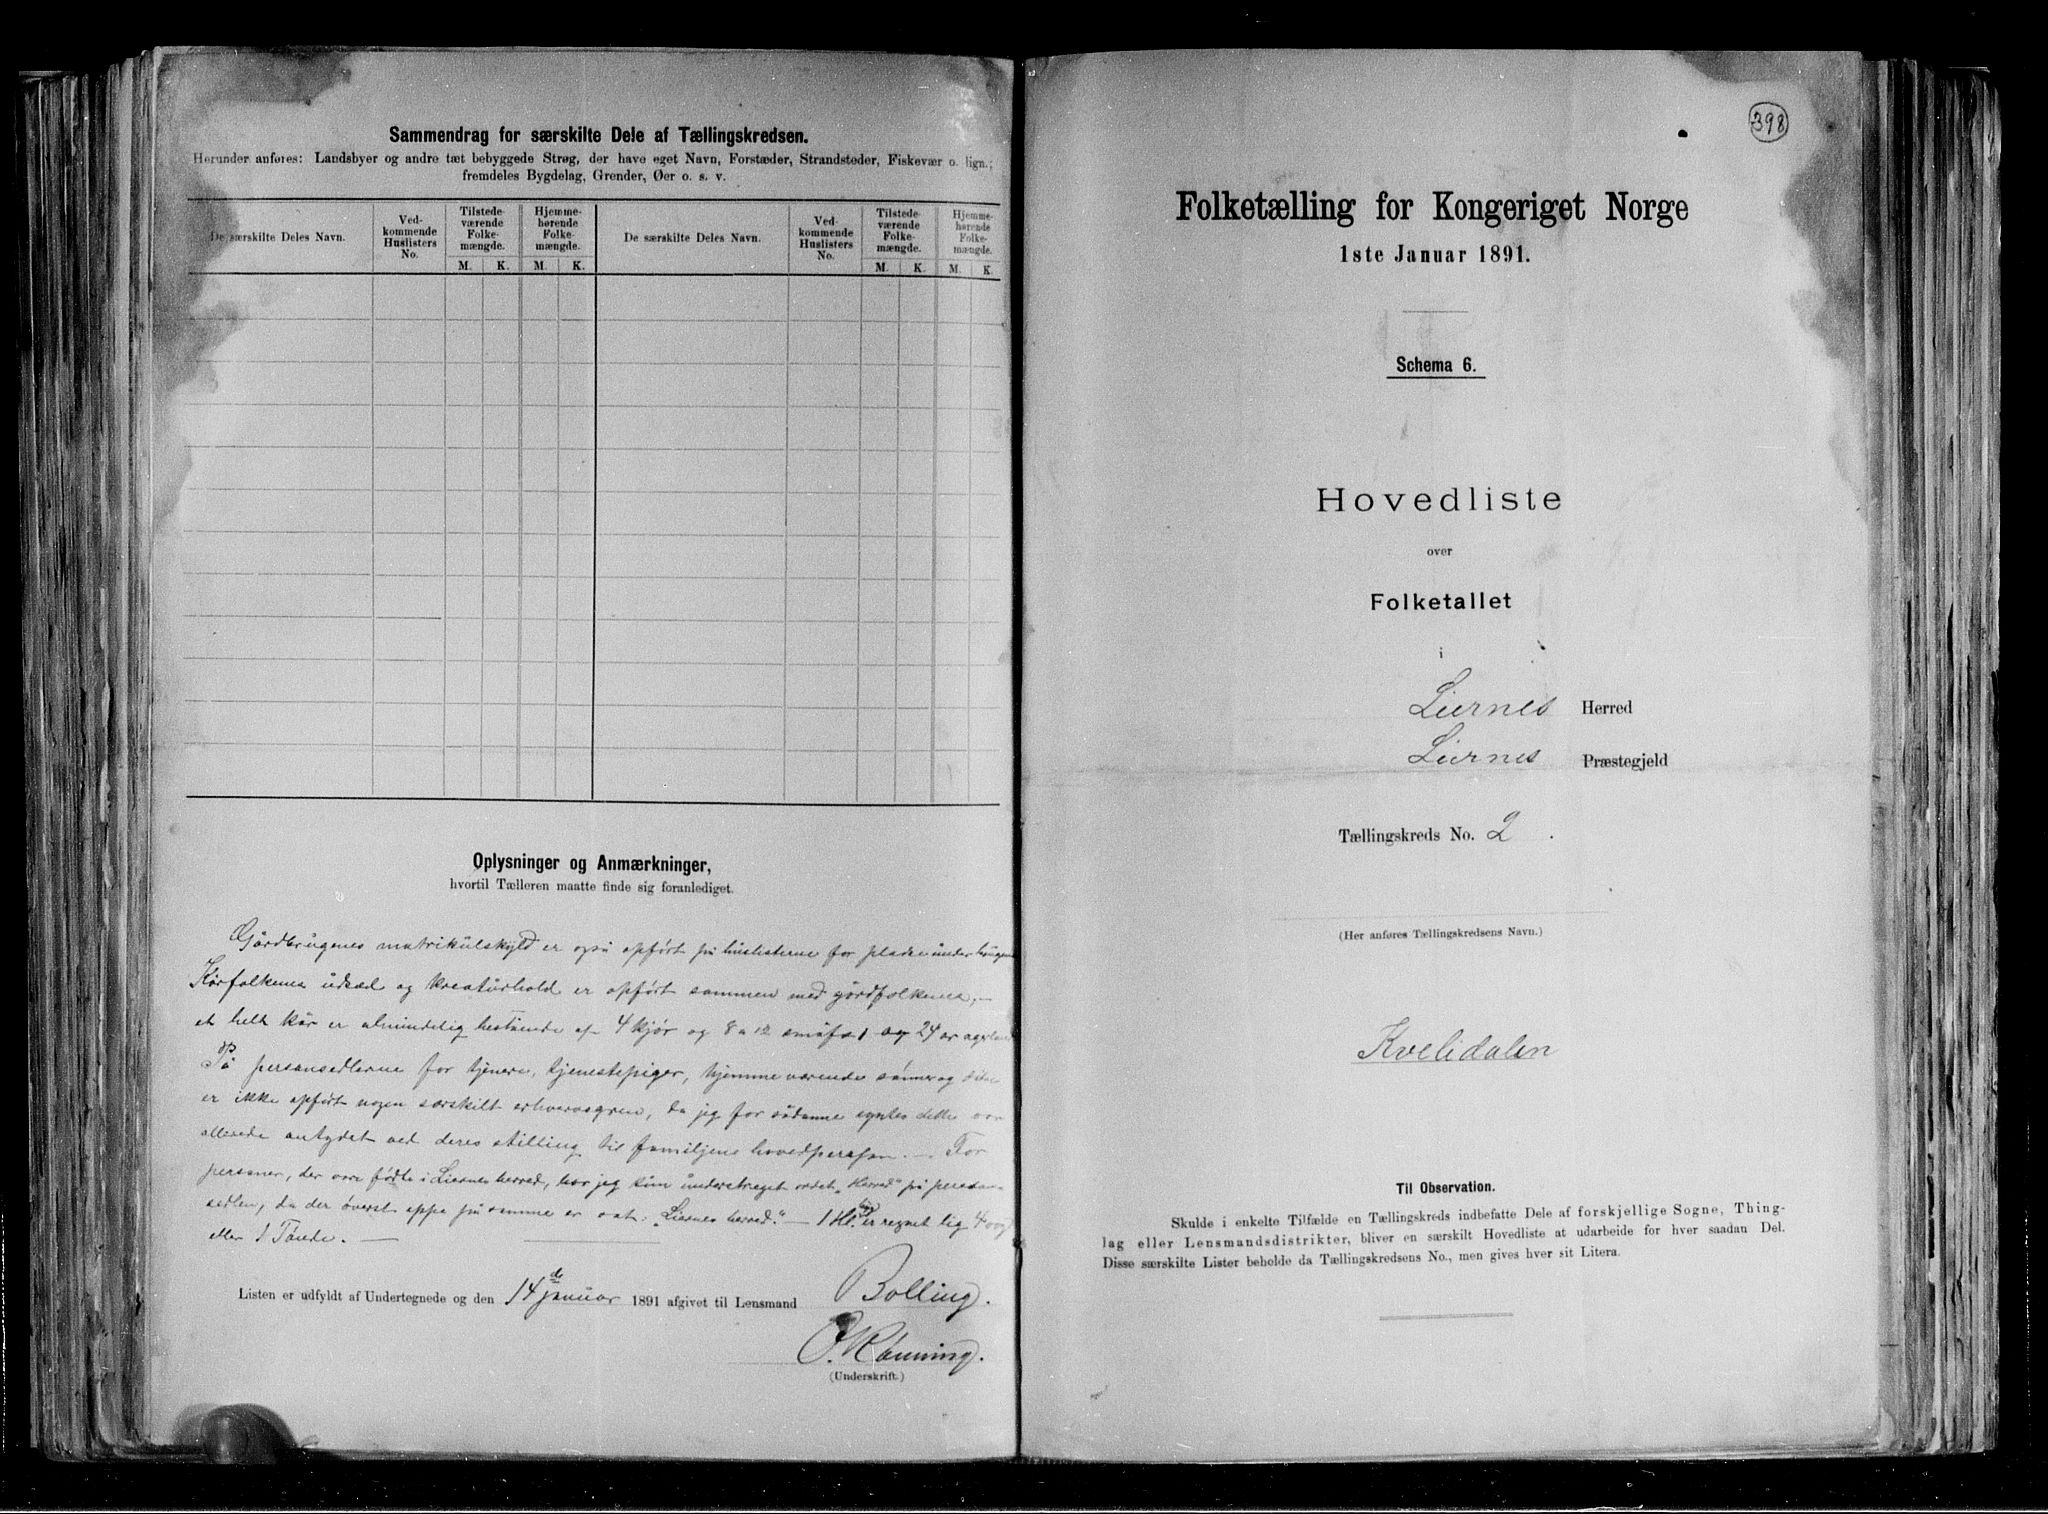 Sammendrag for særskilte Dele af Tællingskredsen.
Herunder anføres: Landsbyer og andre tæt bebyggede Strøg, der have eget Navn, Forstæder, Strandsteder, Fiskevær o. lign.;
fremdeles Bygdelag, Grender, Øer o. s. v.
De særskilte Deles Navn.
Ved-
kommende
Huslisters
No.
Tilstede-
værende
Folke-
mængde.
Hjemme-
hørende
Folke-
mængde.
M. K. M. K.
De særskilte Deles Navn.
Ved-
kommende
Huslisters
No.
Tilstede-
værende
Folke-
mængde.
Hjemme-
hørende
Folke-
mængde.
M. K. M. K.
Oplysninger og Anmærkninger,
hvortil Tælleren maatte finde sig foranlediget.
Gårdbrugenes matrikulskyld er også opført på huslisterne for pladse under
Kårfolkenes udsæd og kreaturhold er opført sammen med gårdfolkenes, –
et helt kår er almindelig bestående af 4 kjør og 8 a 12 småf. og 24 ar
På personsedlerne for tjenere, tjenestepiger, hjemmeværende sønner og
er ikke opført nogen særskilt erhvervsgren, da jeg for sådanne syntes dette var
allerede antydet ved deres stilling til familjens hovedperson. – For
personer, der vare fødte i Liernes herred, har jeg kun understreget ordet „Herred" på person-
sedlen, da der øverst oppe på samme er sat: „Liernes herred." – 1 Hl. er regnet lig
eller 1 Tønde. –
Listen er udfyldt af Undertegnede og den 14de januar 1891 afgivet til Lensmand Bolling.
O. Rønning.
(Underskrift.)
398
Folketælling for Kongeriget Norge
1ste Januar 1891.
Schema 6.
Hovedliste
over
Folketallet
i
Liernes Herred
Liernes Præstegjeld
Tællingskreds No. 2.
(Her anføres Tællingskredsens Navn.)
Kvelidalen
Til Observation.
Skulde i enkelte Tilfælde en Tællingskreds indbefatte Dele af forskjellige Sogne, Thing-
lag eller Lensmandsdistrikter, bliver en særskilt Hovedliste at udarbeide for hver saadan Del.
Disse særskilte Lister beholde da Tællingskredsens No., men gives hver sit Litera.